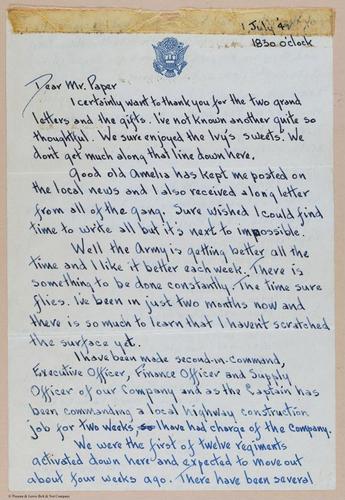 1 July '4
1830 o'clock
Dear Mr. Paper
I certainly want to thank you for the two grand
letters and the gifts. I've not known another quite so
thoughtful. We sure enjoyed the Ivy's sweets. We
don't get much along that line down here.
Good old Amelia has kept me posted on
the local news and I also received a long letter
from all of the gang. Sure wished I could find
time to write all but it's next to impossible.
Well the Army is getting better all the
time and I like it better each week. There is
something to be done constantly. The time sure
flies. I've been in just two months now and
there is so much to learn that I haven't scratched
the surface yet.
I have been made second-in-command,
Executive Officer, Finance Officer and Supply
Officer of our Company and as the Captain has
been commanding a local highway construction
job for two weeks, so I have had charge of the Company.
We were the first of twelve regiments
activated down here and expected to move out
about four weeks ago. There have been several